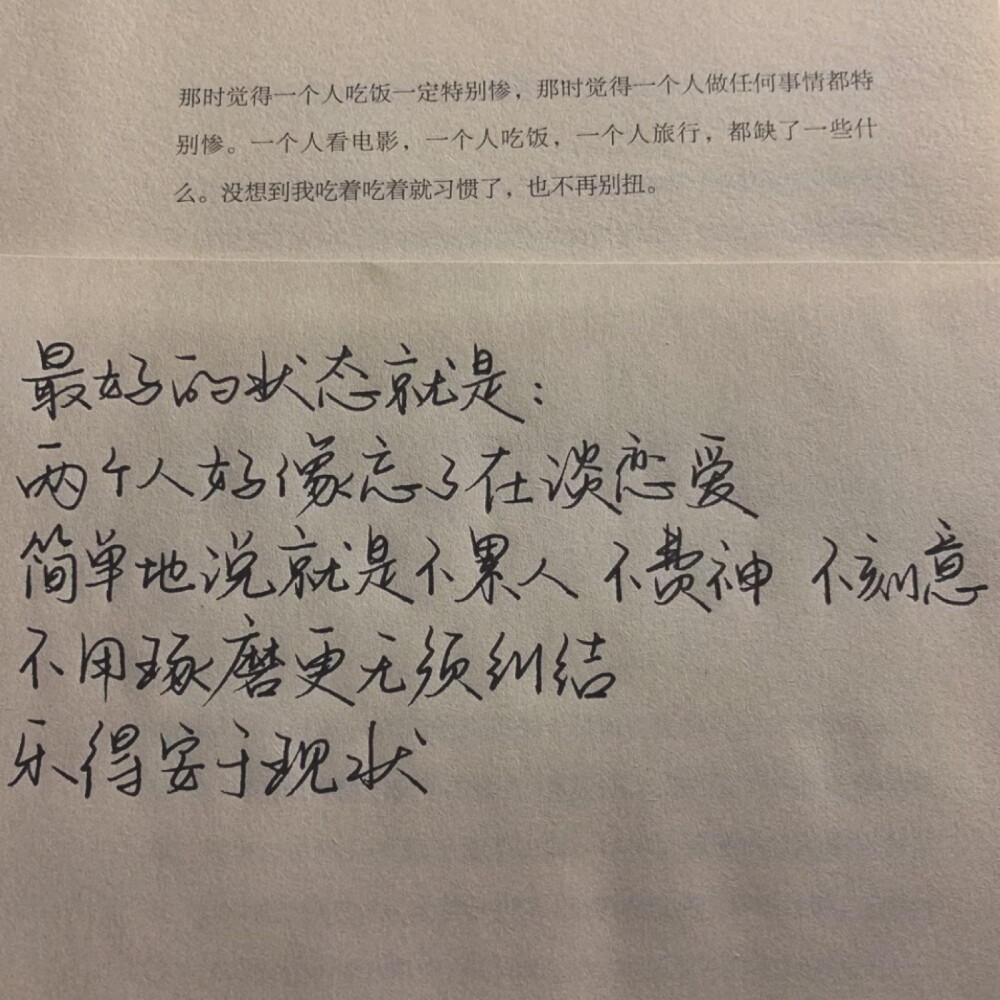 那时觉得一个人吃饭一定特别惨，那时觉得一个人做任何事情都特
别惨。一个人看电影，一个人吃饭，一个人旅行，都缺了一些什
么。没想到我吃着吃着就习惯了，也不再别扭。
最好的状态就是：
两个人好像忘了在谈恋爱
简单地说就是不累人 不费神 不刻意
不用琢磨更无须纠结
乐得安于现状